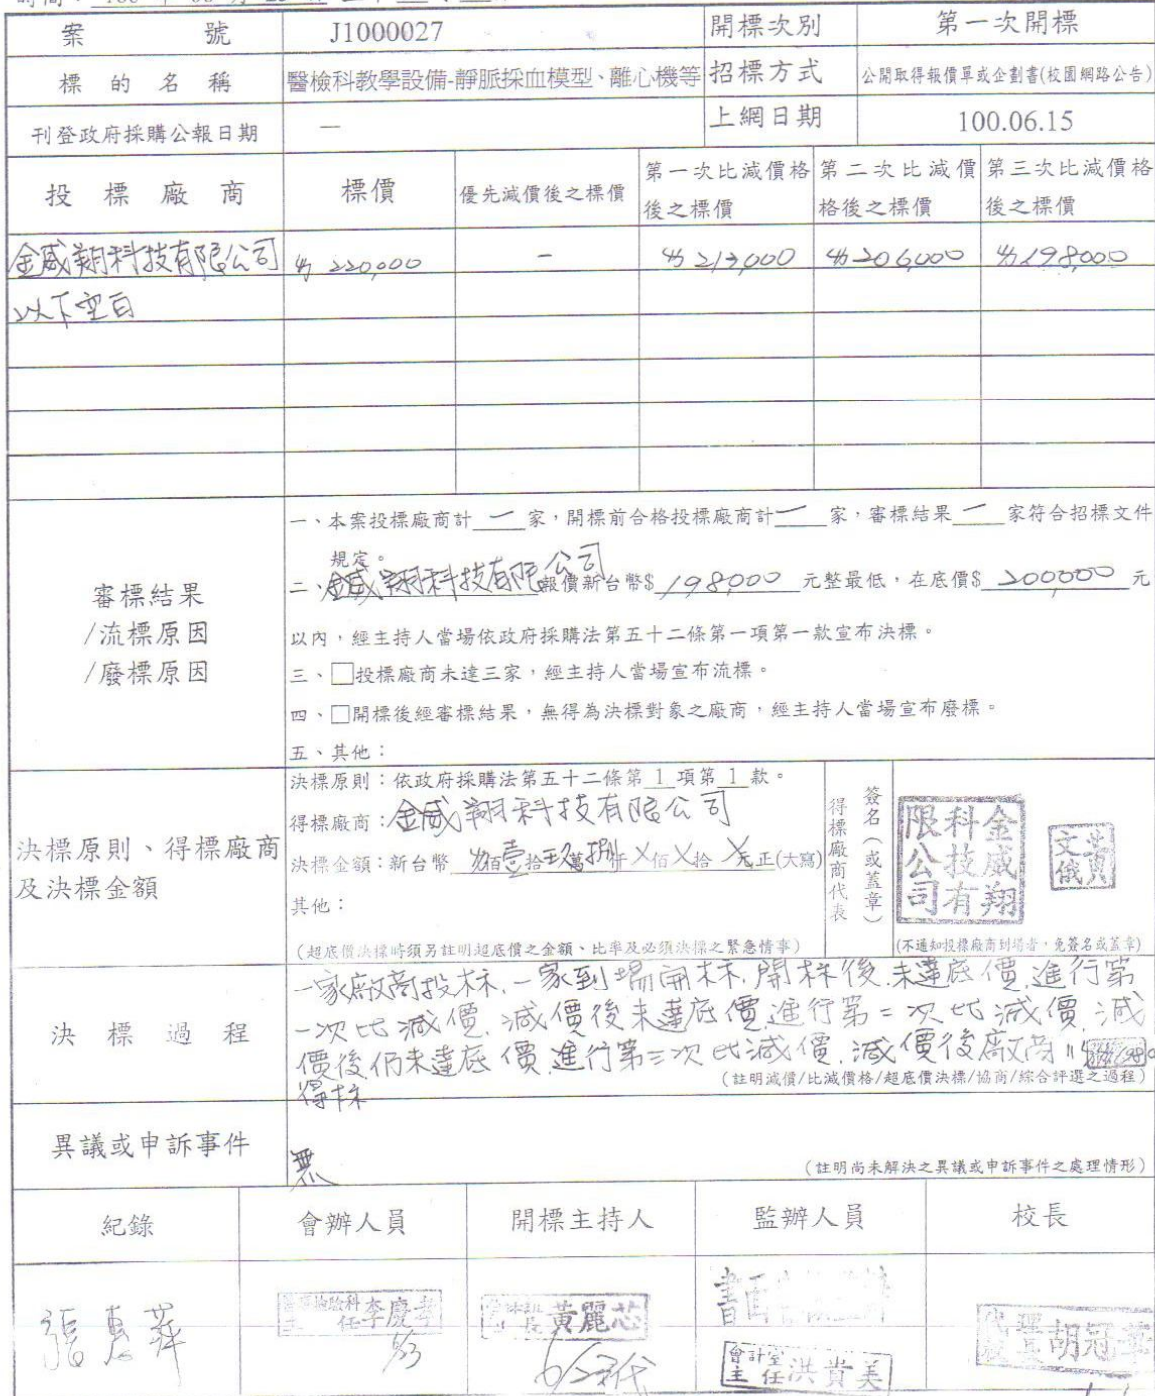 案 號 J1000027 開標次別 第一次開標
標 的 名 稱 醫檢科教學設備-靜脈採血模型、離心機等 招標方式 公開取得報價單或企劃書(校園網路公告)
刊登政府採購公報日期 — 上網日期 100.06.15
投 標 廠 商 標價 優先減價後之標價 第一次比減價格後之標價 第二次比減價格後之標價 第三次比減價格後之標價
金威翔科技有限公司 220,000 - 213,000 206,000 198,000
以下空白
審標結果
/流標原因
/廢標原因
一、本案投標廠商計一家,開標前合格投標廠商計一家,審標結果一家符合招標文件
規定。
二、金威翔科技有限公司報價新台幣$198,000元整最低,在底價$200,000元
以內,經主持人當場依政府採購法第五十二條第一項第一款宣布決標。
三、□投標廠商未達三家,經主持人當場宣布流標。
四、□開標後經審標結果,無得為決標對象之廠商,經主持人當場宣布廢標。
五、其他:
決標原則、得標廠商
及決標金額
決標原則:依政府採購法第五十二條第1項第1款。
得標廠商:金威翔科技有限公司
決標金額:新台幣 佰壹拾玖萬捌仟X佰X拾X元正(大寫)
其他:
(超底價決標時須另註明超底價之金額、比率及必須決標之緊急情事)
得標廠商代表
簽名(或蓋章)
金威翔科技有限公司
黃文俄
(不通知投標廠商到場者,免簽名或蓋章)
決 標 過 程
一家廠商投标,一家到場開标,開标後,未達底價,進行第
一次比減價,減價後未達底價,進行第二次比減價,減
價後仍未達底價,進行第三次比減價,減價後廠商
(註明減價/比減價格/超底價決標/協商/綜合評選之過程)
得标
異議或申訴事件
無
(註明尚未解決之異議或申訴事件之處理情形)
紀錄 會辦人員 開標主持人 監辦人員 校長
張惠萍
李慶孝
黃麗芯
書面
會計室主任洪貴美
胡冠華